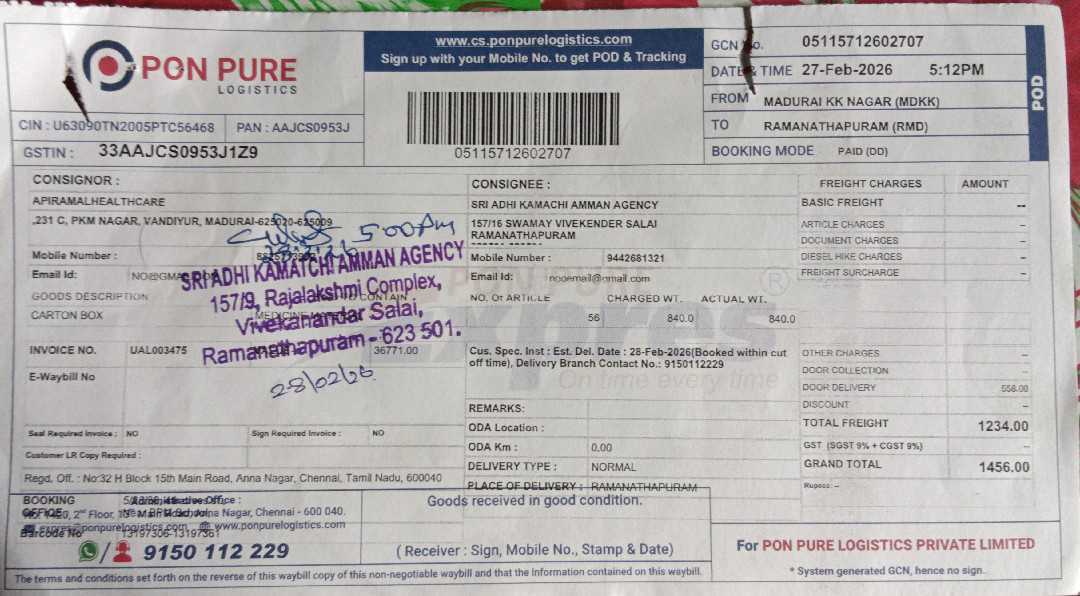 PON PURE
LOGISTICS
CIN : U63090TN2005PTC56468 PAN : AAJCS0953J
GSTIN : 33AAJCS0953J1Z9
www.cs.ponpurelogistics.com
Sign up with your Mobile No. to get POD & Tracking
05115712602707
GCN No. 05115712602707
DATE & TIME 27-Feb-2026 5:12PM
FROM MADURAI KK NAGAR (MDKK)
TO RAMANATHAPURAM (RMD)
BOOKING MODE PAID (DD)
POD
CONSIGNOR :
APIRAMALHEALTHCARE
,231 C, PKM NAGAR, VANDIYUR, MADURAI-625020-625009
Mobile Number :
Email Id:
GOODS DESCRIPTION TO CONTAIN
CARTON BOX MEDICINE
INVOICE NO. UAL003475 36771.00
E-Waybill No
Seal Required Invoice : NO Sign Required Invoice : NO
Customer LR Copy Required :
Regd. Off. : No:32 H Block 15th Main Road, Anna Nagar, Chennai, Tamil Nadu, 600040
5:00 AM
SRI ADHI KAMATCHI AMMAN AGENCY
157/9, Rajalakshmi Complex,
Vivekanandar Salai,
Ramanathapuram - 623 501.
28/02/26
CONSIGNEE :
SRI ADHI KAMACHI AMMAN AGENCY
157/16 SWAMAY VIVEKENDER SALAI
RAMANATHAPURAM
Mobile Number : 9442681321
Email Id : nooemail@gmail.com
NO. Of ARTICLE CHARGED WT. ACTUAL WT.
56 840.0 840.0
Cus. Spec. Inst : Est. Del. Date : 28-Feb-2026(Booked within cut
off time), Delivery Branch Contact No.: 9150112229
PON PURE
On time every time
REMARKS:
ODA Location :
ODA Km : 0.00
DELIVERY TYPE : NORMAL
PLACE OF DELIVERY : RAMANATHAPURAM
FREIGHT CHARGES AMOUNT
BASIC FREIGHT --
ARTICLE CHARGES --
DOCUMENT CHARGES --
DIESEL HIKE CHARGES --
FREIGHT SURCHARGE --
OTHER CHARGES --
DOOR COLLECTION --
DOOR DELIVERY 558.00
DISCOUNT --
TOTAL FREIGHT 1234.00
GST (SGST 9% + CGST 9%) --
GRAND TOTAL 1456.00
Rupees: --
BOOKING
OFFICE
Administrative Office :
2nd Floor, Anna Nagar, Chennai - 600 040.
www.ponpurelogistics.com
Barcode No 13197306-13197361
9150 112 229
Goods received in good condition.
( Receiver : Sign, Mobile No., Stamp & Date)
For PON PURE LOGISTICS PRIVATE LIMITED
* System generated GCN, hence no sign.
The terms and conditions set forth on the reverse of this waybill copy of this non-negotiable waybill and that the Information contained on this waybill.